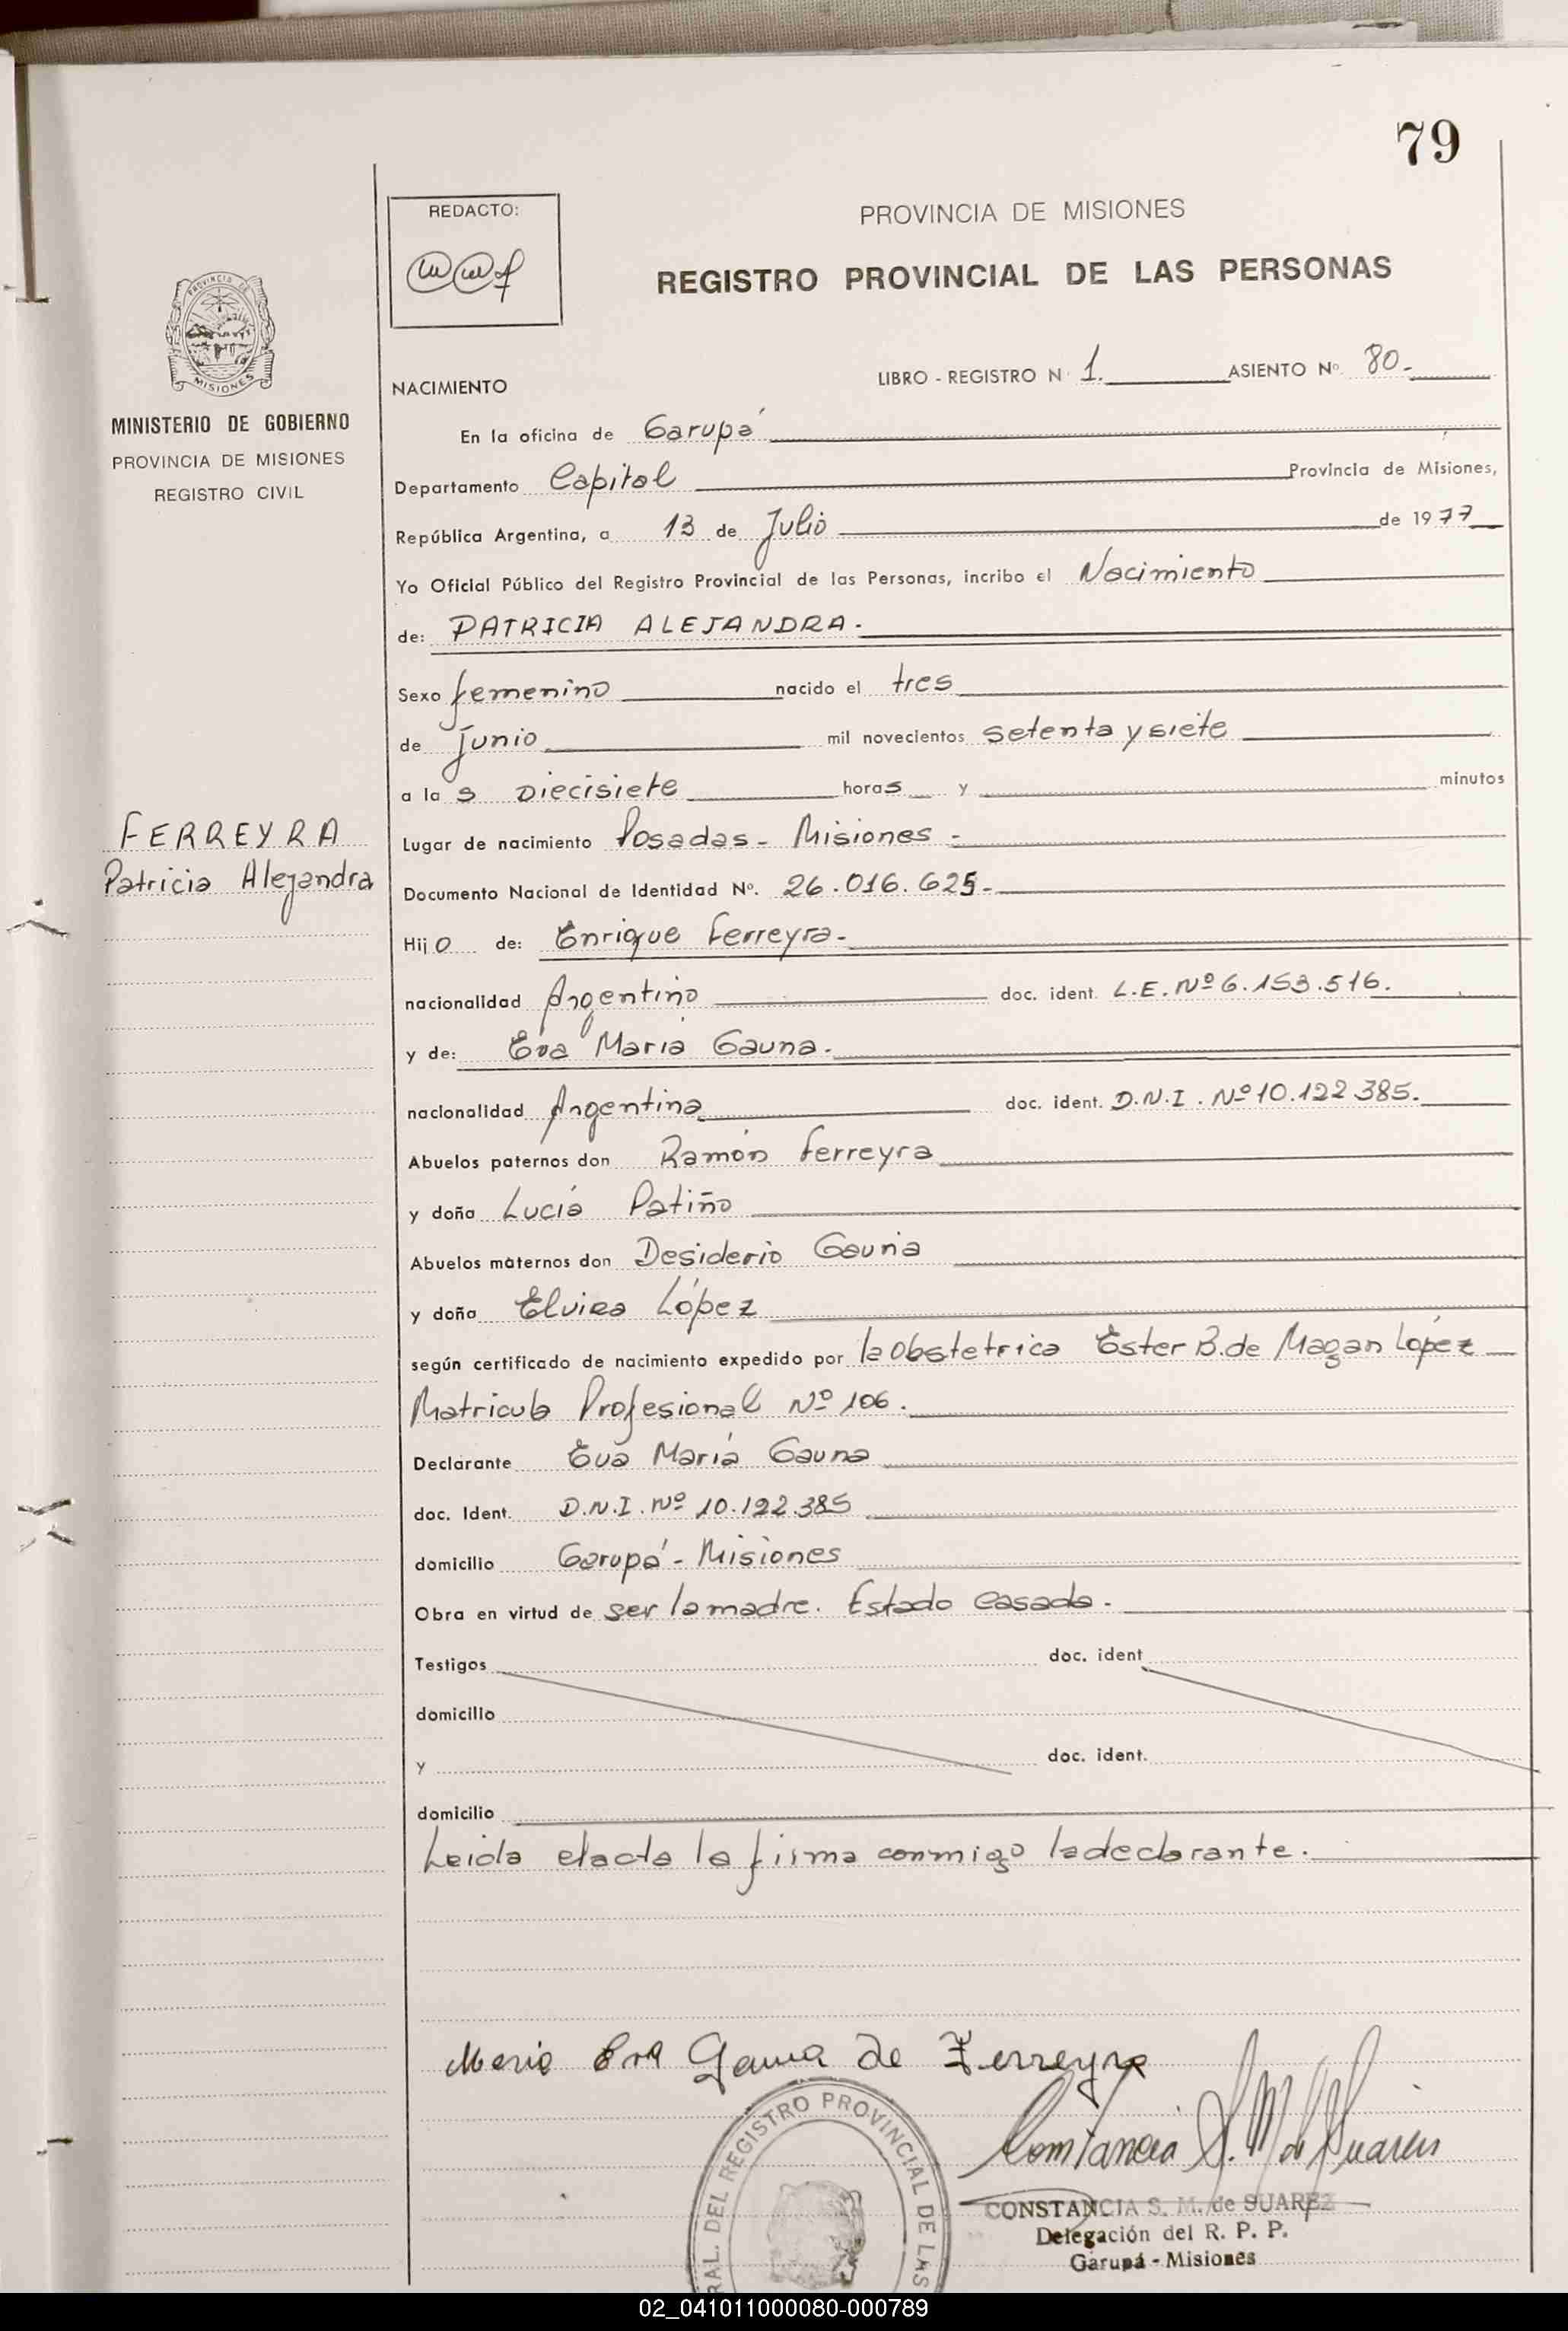 79
REDACTO:
PROVINCIA DE MISIONES
REGISTRO PROVINCIAL DE LAS PERSONAS
PROVINCIA DE
MISIONES
MINISTERIO DE GOBIERNO
PROVINCIA DE MISIONES
REGISTRO CIVIL
NACIMIENTO
LIBRO - REGISTRO N 1. ASIENTO Nº 80-
En la oficina de Garupá
Departamento Capital Provincia de Misiones,
República Argentina, a 13 de Julio de 1977
Yo Oficial Público del Registro Provincial de las Personas, incribo el Nacimiento
de: PATRICIA ALEJANDRA.
Sexo femenino nacido el tres
de junio mil novecientos setenta y siete
a la s Diecisiete horas y minutos
FERREYRA
Patricia Alejandra
Lugar de nacimiento Posadas - Misiones -
Documento Nacional de Identidad Nº. 26.016.625-
Hijo de: Enrique Ferreyra-
nacionalidad Argentino doc. ident. L.E. Nº 6.153.516.
y de: Eva María Gauna.
nacionalidad Argentina doc. ident. D.N.I. Nº 10.122.385.
Abuelos paternos don Ramón Ferreyra
y doña Lucía Patiño
Abuelos maternos don Desiderio Gauna
y doña Elvira López
según certificado de nacimiento expedido por la Obstetrica Ester B. de Magan López
Matricula Profesional Nº 106.
Declarante Eva María Gauna
doc. Ident. D.N.I. Nº 10.122.385
domicilio Garupá - Misiones
Obra en virtud de ser la madre. Estado Casada.
Testigos doc. ident
domicilio
y doc. ident.
domicilio
Leida el acta la firma conmigo la declarante.
Maria Eva Gauna de Ferreyra
Constancia S. M. de Suarez
CONSTANCIA S. M. de SUAREZ
Delegación del R. P. P.
Garupá - Misiones
RAL. DEL REGISTRO PROVINCIAL DE LAS
02_041011000080-000789